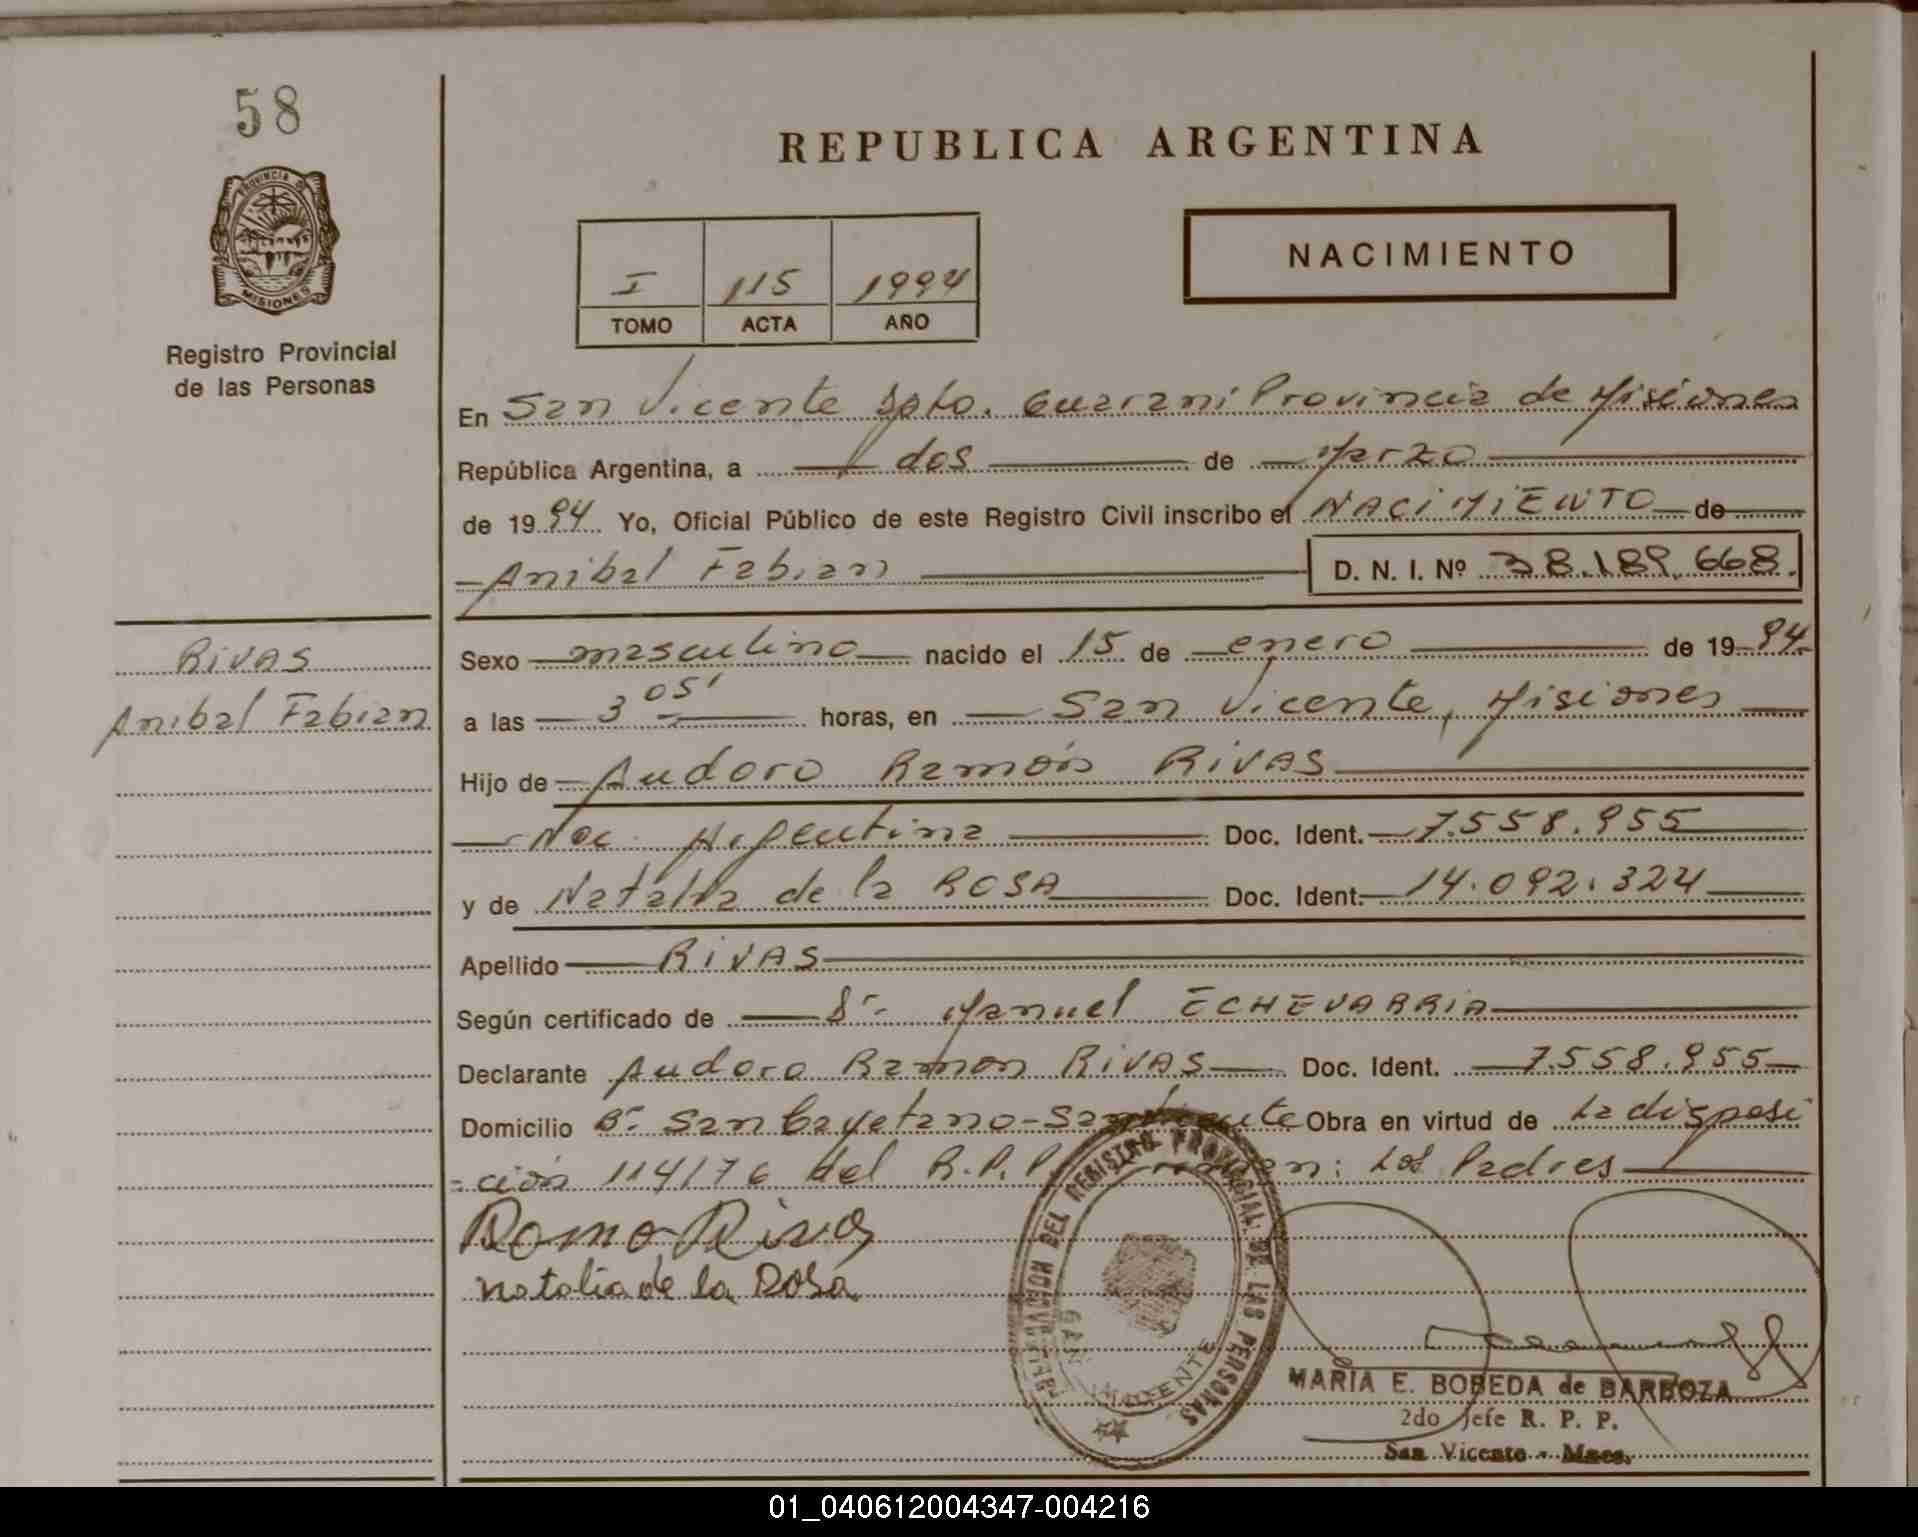 58
PROVINCIA DE
MISIONES
Registro Provincial
de las Personas
REPUBLICA ARGENTINA
I 115 1994
TOMO ACTA AÑO
NACIMIENTO
En San Vicente Dpto. Guarani Provincia de Misiones
República Argentina, a dos de Marzo
de 1994 Yo, Oficial Público de este Registro Civil inscribo el NACIMIENTO de
Anibal Fabian D. N. I. Nº 38.189.668.
RIVAS
Anibal Fabian
Sexo masculino nacido el 15 de enero de 1994
a las 3 05' horas, en San Vicente, Misiones
Hijo de Audoro Ramón RIVAS
Nac. Argentina Doc. Ident. 7.558.955
y de Natalia de la ROSA Doc. Ident. 14.092.324
Apellido RIVAS
Según certificado de Dr. Manuel ECHEVARRIA
Declarante Audoro Ramon RIVAS Doc. Ident. 7.558.955
Domicilio Bº San Cayetano-San Vicente Obra en virtud de La disposi
ción 114/76 del R.P.P. : Los Padres
Ramo Rivas
Natalia de la Rosa
DEL REGISTRO PROVINCIAL DE LAS PERSONAS
SAN VICENTE
MARIA E. BOBEDA de BARBOZA
2do Jefe R. P. P.
San Vicente - Mnes.
01_040612004347-004216